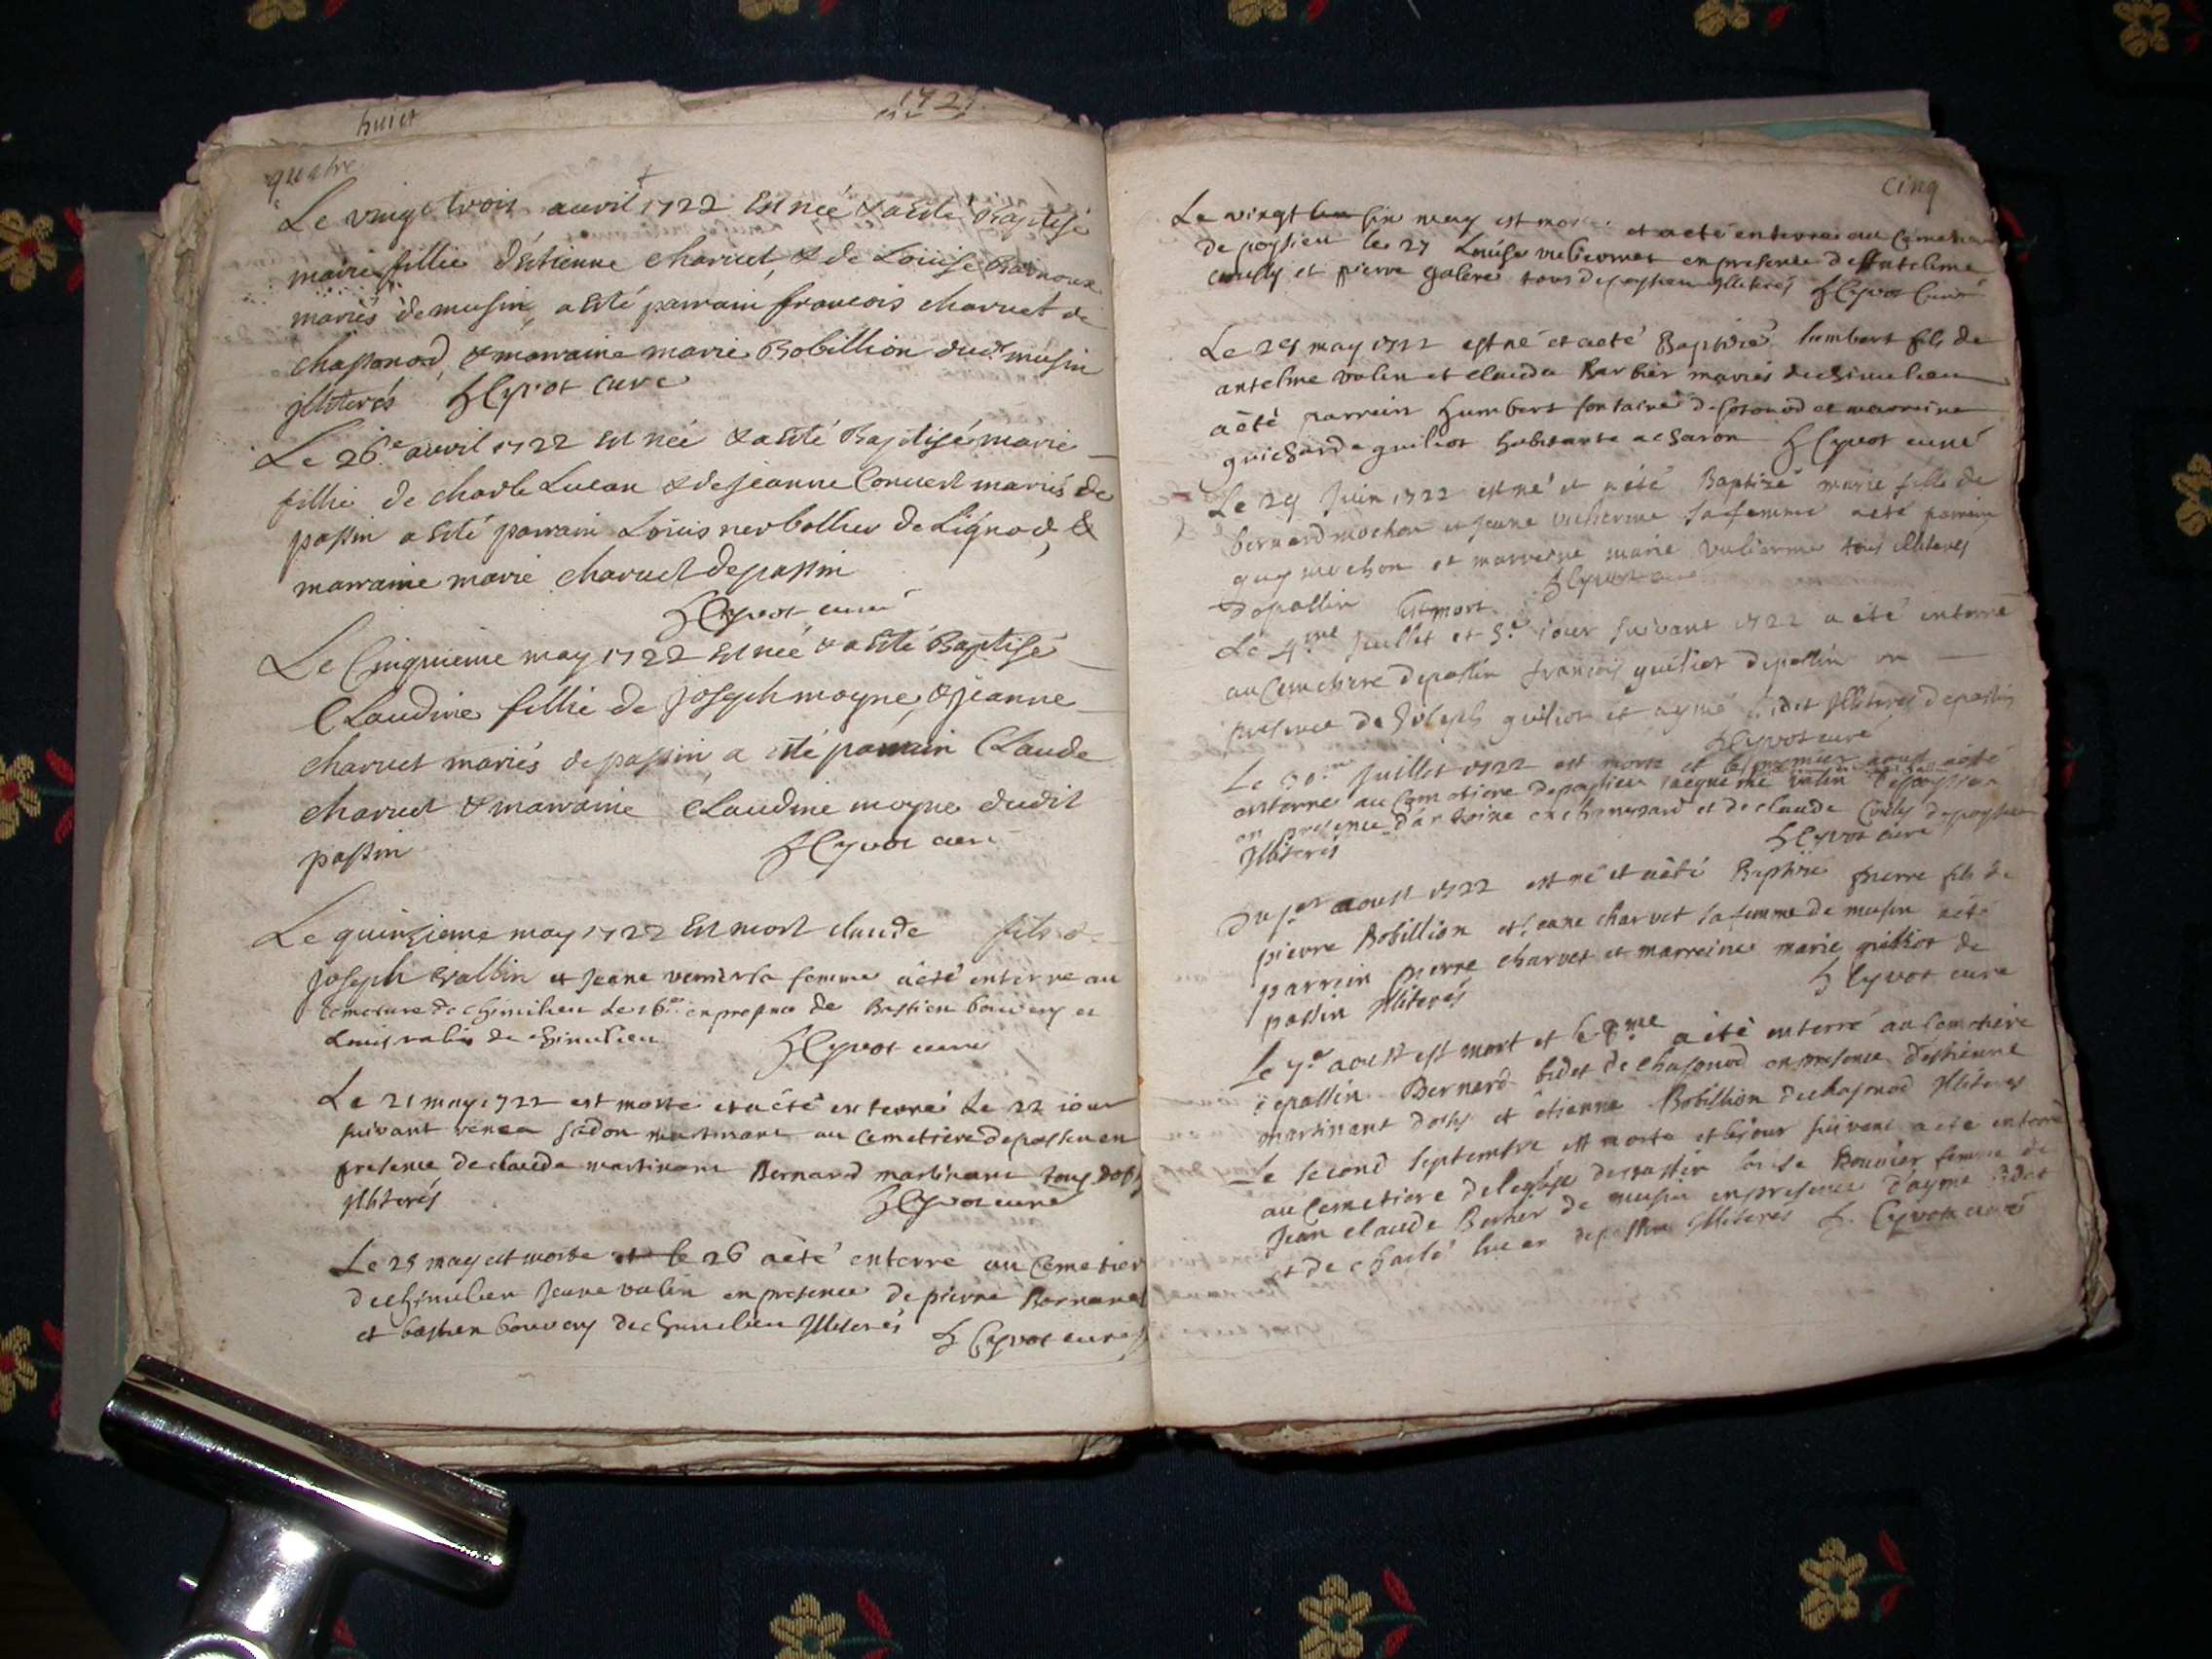 huict
1721
quatre
Le vingt trois auvril 1722 Est née & a esté Baptisé
marie fillie d'éstienne charvet, & de Loüise
mariés de musin, a esté parrain francois charvet de
chassonod, & marraine marie Bobillion dud musin
jlliterés H Cyvot curé
Le 26e avril 1722 Est née & a esté Baptisé marie
fillie de charle Lucan & de jeanne Convert mariés de
passin a esté parrain Loüis nerbollier de Lignod, &
marraine marie charvet de passin
H Cyvot curé
Le Cinquieme may 1722 Est née & a esté Baptisé
Claudine fillie de joseph moyne, & jeanne
charvet mariés de passin, a esté parrain Claude
charvet & marraine Claudine moyne dudit
passin H Cyvot curé
Le quinzieme may 1722 Est mort claude fils de
joseph vallin et jeane sa femme a eté enterre au
de chimilieu Le 16e en presence de Bastien bouvery et
Louis valin de chimilieu H Cyvot curé
Le 21 may 1722 est morte et a eté enterré Le 22 jour
suivant martinant au cemetiere de en
presence de claude martinant Bernard martinant tous
jlliterés H Cyvot curé
Le 25 may est morte et le 26 a eté enterre au Cemetier
de chimilieu jeane valin en presence de pierre
et bastien bouvery de chimilieu jlliterés H Cyvot curé
cinq
Le vingt may est et a eté enterrée au Cemetiere
de poysieu le 27 Louise en presence d'Antelme
et pierre tous de poysieu jlliterés H Cyvot Curé
Le 29 may 1722 est né et a eté Baptisé humbert fils de
antelme valin et clauda Barbier mariés de chimilieu
a été parrein humbert fontaine de et marreine
guicharde guiliot habitante a charon H Cyvot curé
Le 29 Juin 1722 est né et a eté Baptizé marie fille de
bernard mochon et jeane vulierme sa femme a eté parrein
guy mochon et marreine marie vulierme tous jlliterés
de passin H Cyvot curé
est mort
Le 4me Juillet et 5e jour suivant 1722 a eté interré
au Cemetiere de passin françois guiliot de passin en
presence de Joseph guiliot et aymé bidat jlliterés de passin
H Cyvot curé
Le 30me juillet 1722 est morte et le premier aoust a eté
enterrée au Cemetiere de poysieu valin de poysieu
en presence d'antoine et de claude de poysieu
jlliterés H Cyvot curé
Du 1er aoust 1722 est né et a eté Baptisé pierre fils de
pierre Bobillion et jeane charvet sa femme de musin a eté
parrein pierre charvet et marreine marie guilliot de
passin jlliterés H Cyvot curé
Le 7e aoust est mort et le 8me a eté enterré au Cemetiere
de passin Bernard bidat de chasonod en presence d'estienne
martinant et etienne Bobillion de chasonod jlliterés
Le second septembre est morte et le jour suivant a eté enterré
au Cemetiere de leglise de passin Bouvier femme de
jean claude de musin en presence d'ayme bidat
et de charle lucan de passin jlliterés H. Cyvot curé